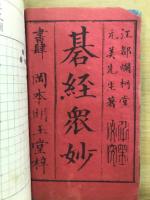 江都爛柯堂
元美先生著
碁經眾妙
書肆 岡本
玉堂梓